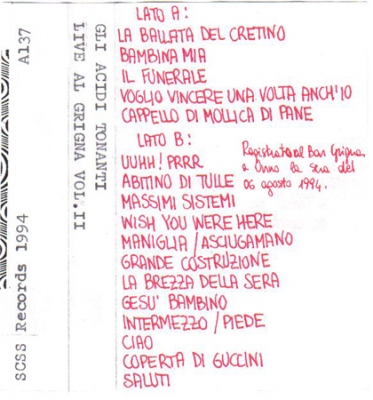 A137
SCSS Records 1994
GLI ACIDI TONANTI
LIVE AL GRIGNA VOL.II
LATO A:
LA BALLATA DEL CRETINO
BAMBINA MIA
IL FUNERALE
VOGLIO VINCERE UNA VOLTA ANCH'IO
CAPPELLO DI MOLLICA DI PANE
LATO B:
UUHH! PRRR
ABITINO DI TULLE
MASSIMI SISTEMI
WISH YOU WERE HERE
MANIGLIA / ASCIUGAMANO
GRANDE COSTRUZIONE
LA BREZZA DELLA SERA
GESU' BAMBINO
INTERMEZZO / PIEDE
CIAO
COPERTA DI GUCCINI
SALUTI
Registrato al Bar Grigna
a Onno la sera del
06 agosto 1994.